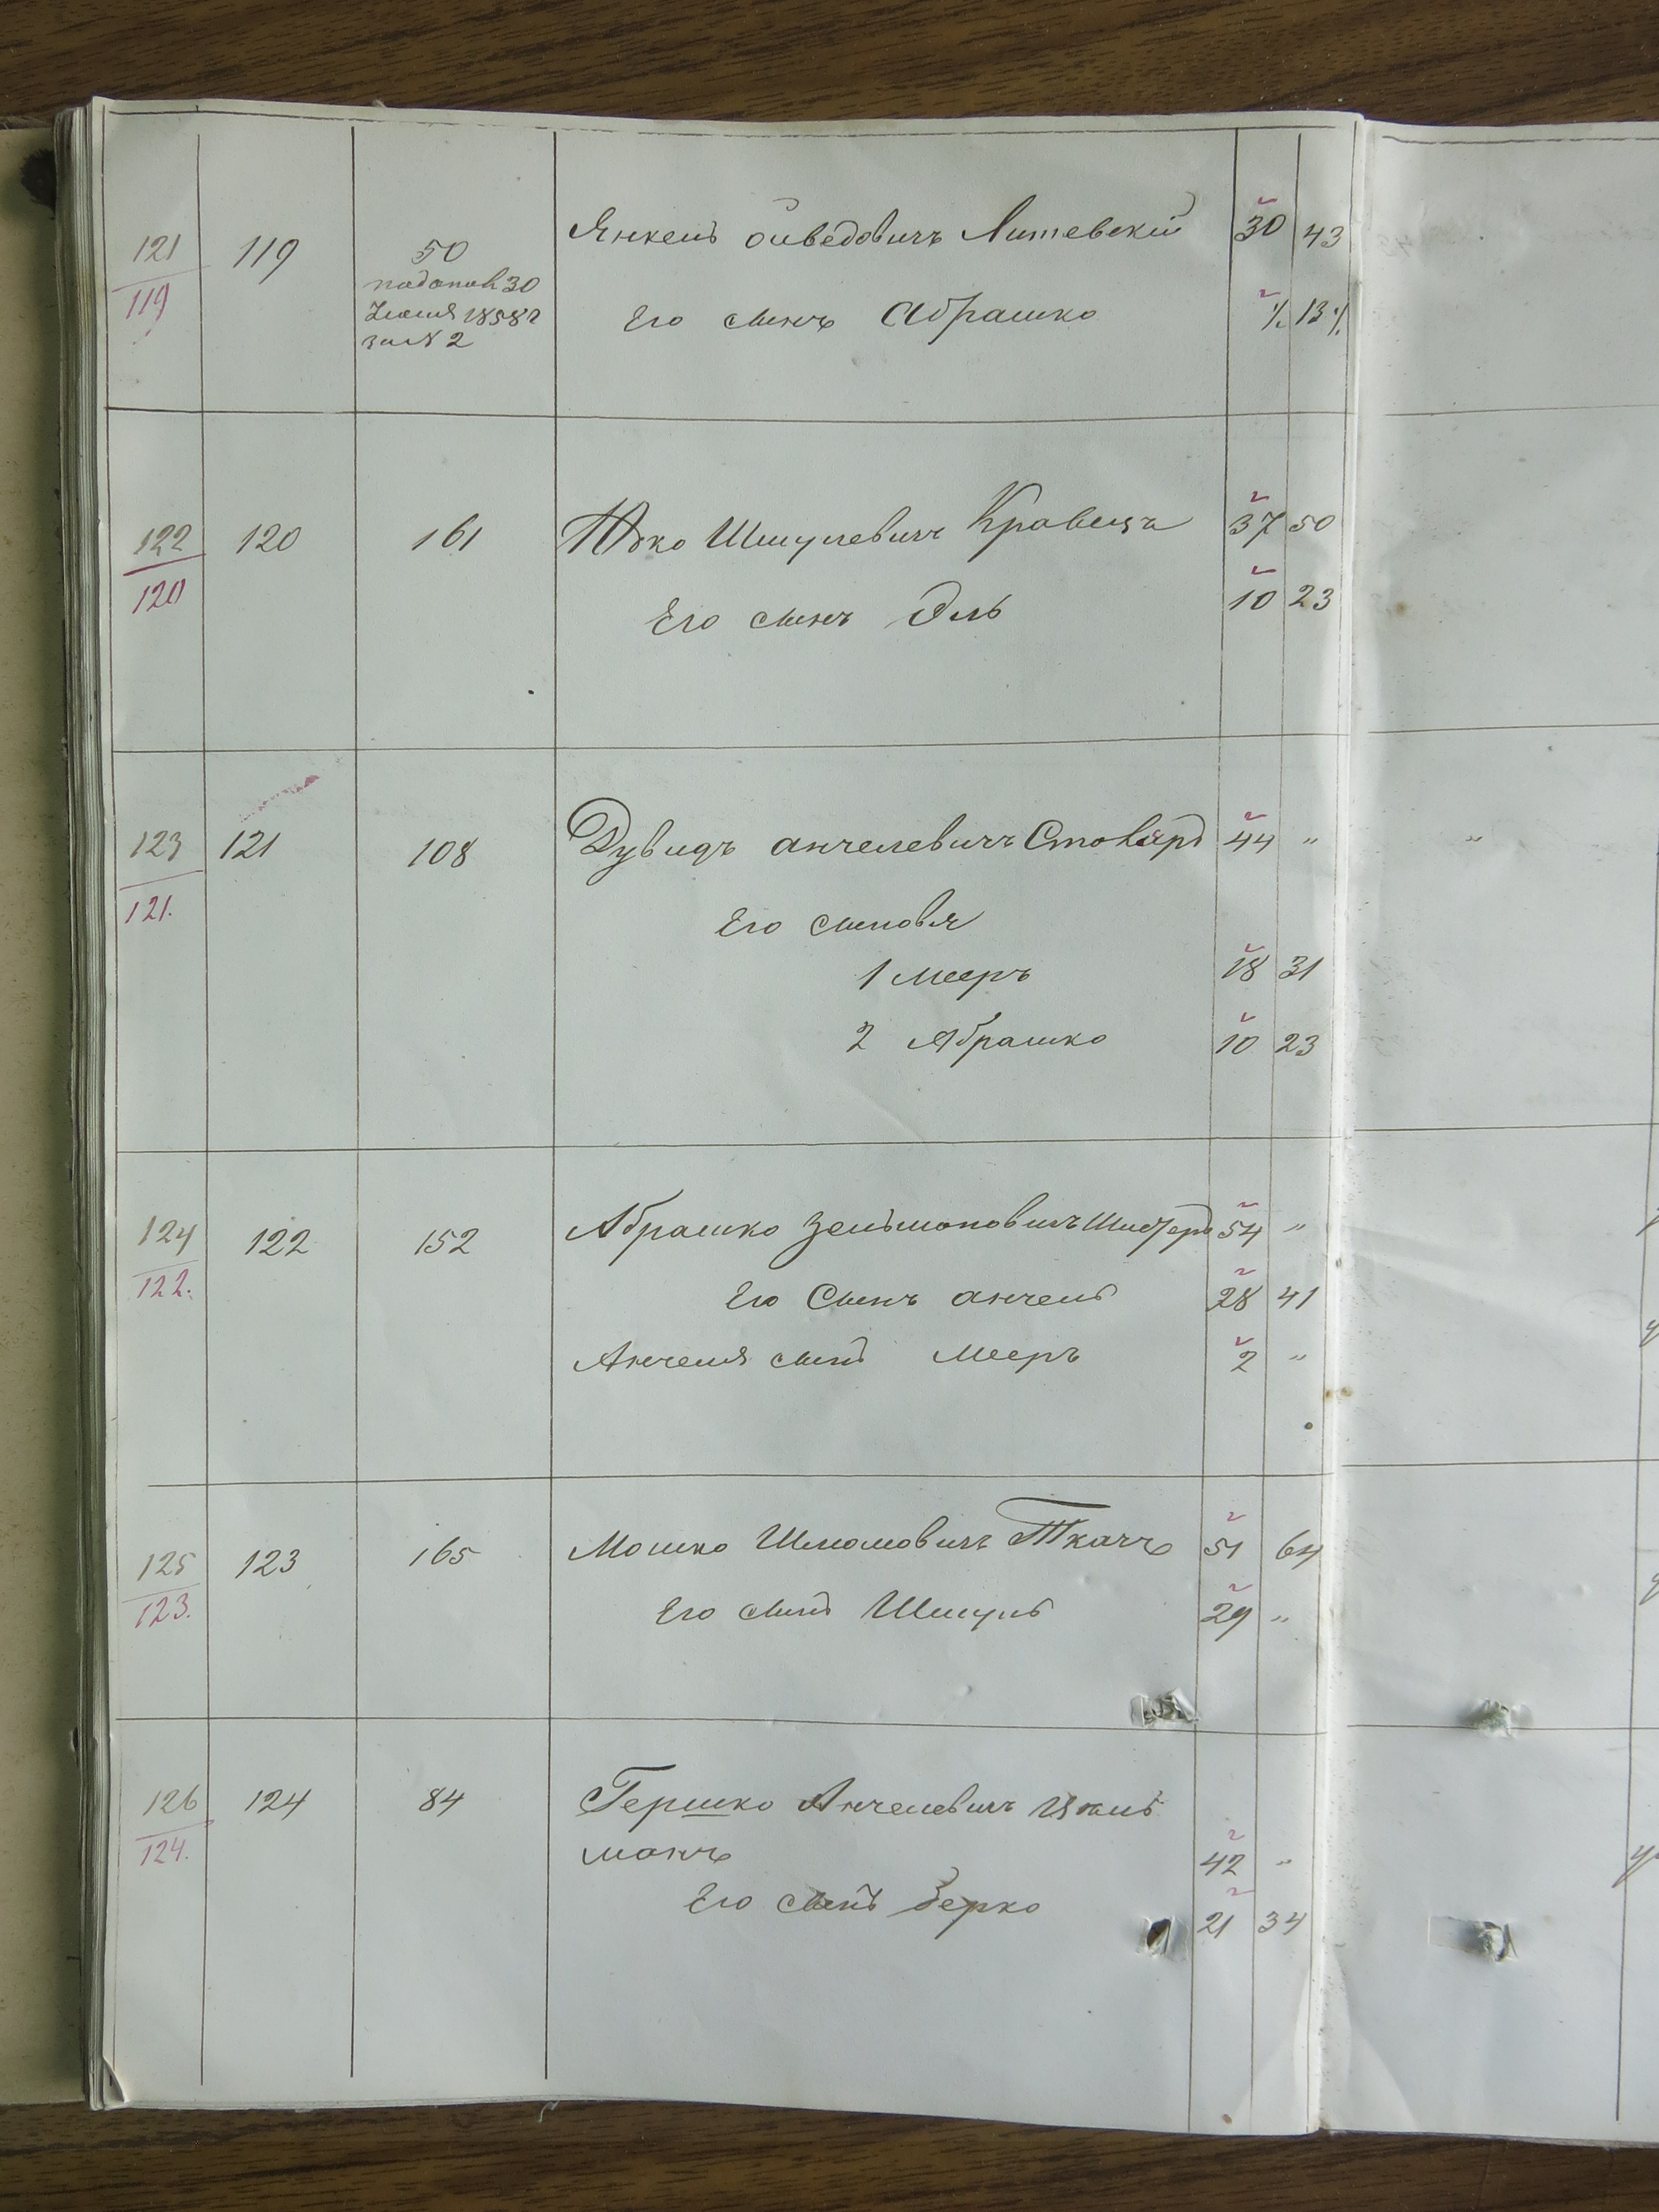 121 119 50 Янкель Ойведовичъ Литевский 30 43
119 30
1858 г
2
Его сынъ Абрашко ½ 13½
122 120 161 Юко Шмулевичъ Кравецъ 37 50
120 Его сынъ Эль 10 23
123 121 108 Дувидъ Анчелевичъ Столяръ 44 "  "
121.
Его сыновья
1 Мееръ 18 31
2 Абрашко 10 23
124 122 152 Абрашко Зельмановичъ 54 "
122. Его Сынъ Анчель 28 41
Анчеля сынъ Мееръ 2 "
125 123 165 Мошко Шломовичъ Ткачъ 51 64
123. Его сынъ Шмуль 29 "
126 124 84 Гершко Анчелевичъ
124. манъ 42 "
Его сынъ Берко 21 34